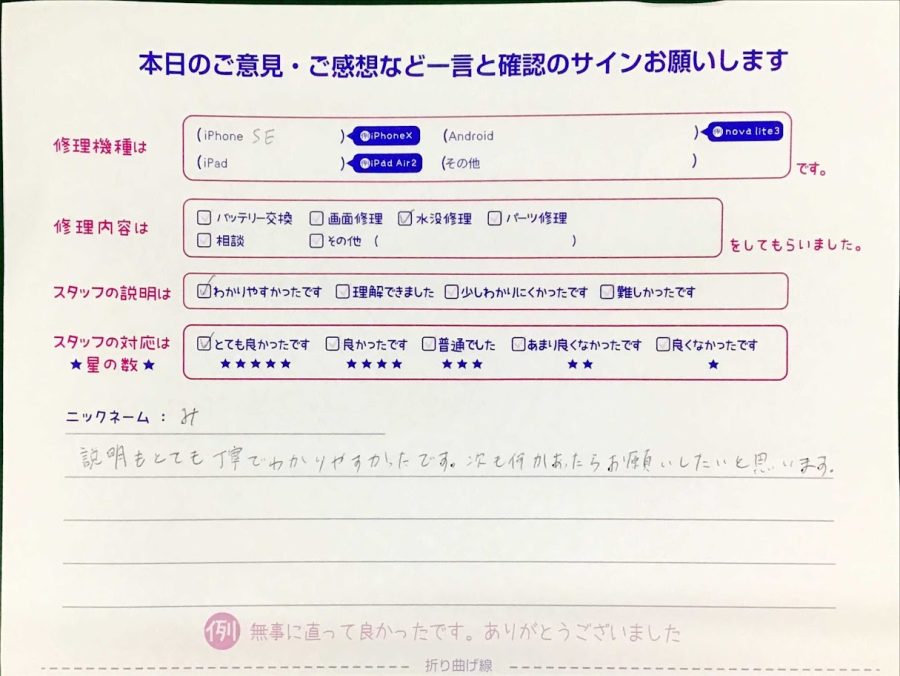 本日のご意見・ご感想など一言と確認のサインお願いします
修理機種は (iPhone SE ) 例iPhoneX (Android ) 例nova lite3
(iPad ) 例iPad Air2 (その他 ) です。
修理内容は □バッテリー交換 □画面修理 ☑水没修理 □パーツ修理
□相談 □その他 ( ) をしてもらいました。
スタッフの説明は ☑わかりやすかったです □理解できました □少しわかりにくかったです □難しかったです
スタッフの対応は ☑とても良かったです □良かったです □普通でした □あまり良くなかったです □良くなかったです
★星の数★ ★★★★★ ★★★★ ★★★ ★★ ★
ニックネーム : み
説明もとても丁寧でわかりやすかったです。次も何かあったらお願いしたいと思います。
例 無事に直って良かったです。ありがとうございました
折り曲げ線